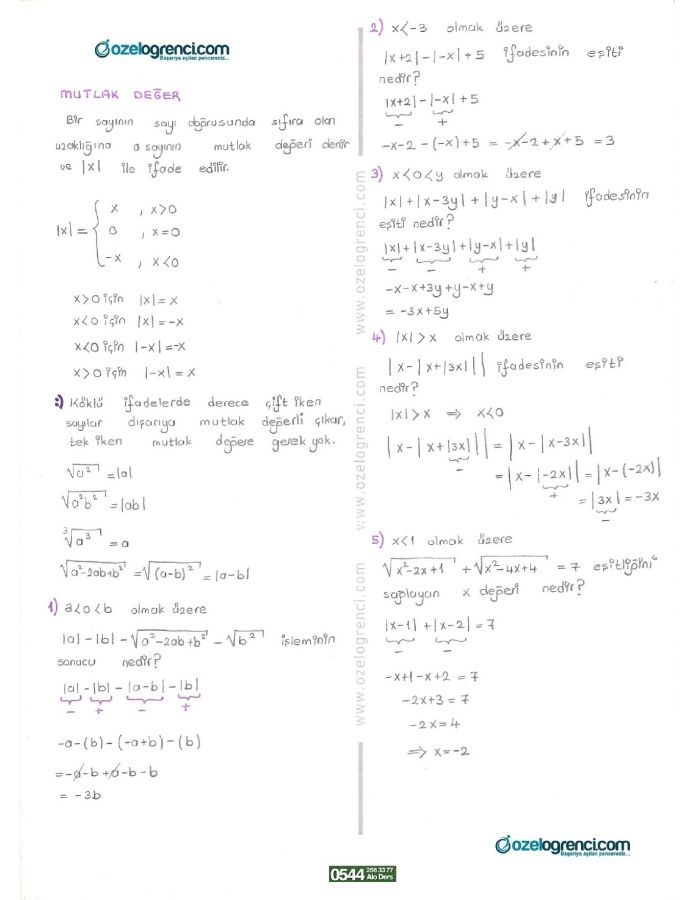 ozelogrenci.com
Başarıya açılan pencereniz...
MUTLAK DEĞER
Bir sayının sayı doğrusunda sıfıra olan
uzaklığına o sayının mutlak değeri denir
ve |x| ile ifade edilir.
|x| = { x , x>0
0 , x=0
-x , x<0
x>0 için |x| = x
x<0 için |x| = -x
x<0 için |-x| = -x
x>0 için |-x| = x
Köklü ifadelerde derece çift iken
sayılar dışarıya mutlak değerli çıkar,
tek iken mutlak değere gerek yok.
√a² = |a|
√a²b² = |ab|
³√a³ = a
√a²-2ab+b² = √(a-b)² = |a-b|
1) a<0<b olmak üzere
|a| - |b| - √a²-2ab+b² - √b² işleminin
sonucu nedir?
|a| - |b| - |a-b| - |b|
- + - +
-a-(b)-(-a+b)-(b)
= -a-b+a-b-b
= -3b
2) x<-3 olmak üzere
|x+2| - |-x| + 5 ifadesinin eşiti
nedir?
|x+2| - |-x| + 5
- +
-x-2-(-x)+5 = -x-2+x+5 = 3
3) x<0<y olmak üzere
|x| + |x-3y| + |y-x| + |y| ifadesinin
eşiti nedir?
|x| + |x-3y| + |y-x| + |y|
- - + +
-x-x+3y+y-x+y
= -3x+5y
4) |x|>x olmak üzere
|x-|x+|3x||| ifadesinin eşiti
nedir?
|x|>x ⇒ x<0
|x-|x+|3x||| = |x-|x-3x||
-
= |x-|-2x|| = |x-(-2x)|
+
= |3x| = -3x
-
5) x<1 olmak üzere
√x²-2x+1 + √x²-4x+4 = 7 eşitliğini
sağlayan x değeri nedir?
|x-1| + |x-2| = 7
- -
-x+1-x+2 = 7
-2x+3 = 7
-2x = 4
⇒ x = -2
www.ozelogrenci.com
www.ozelogrenci.com
www.ozelogrenci.com
ozelogrenci.com
Başarıya açılan pencereniz...
0544 256 33 77
Alo Ders